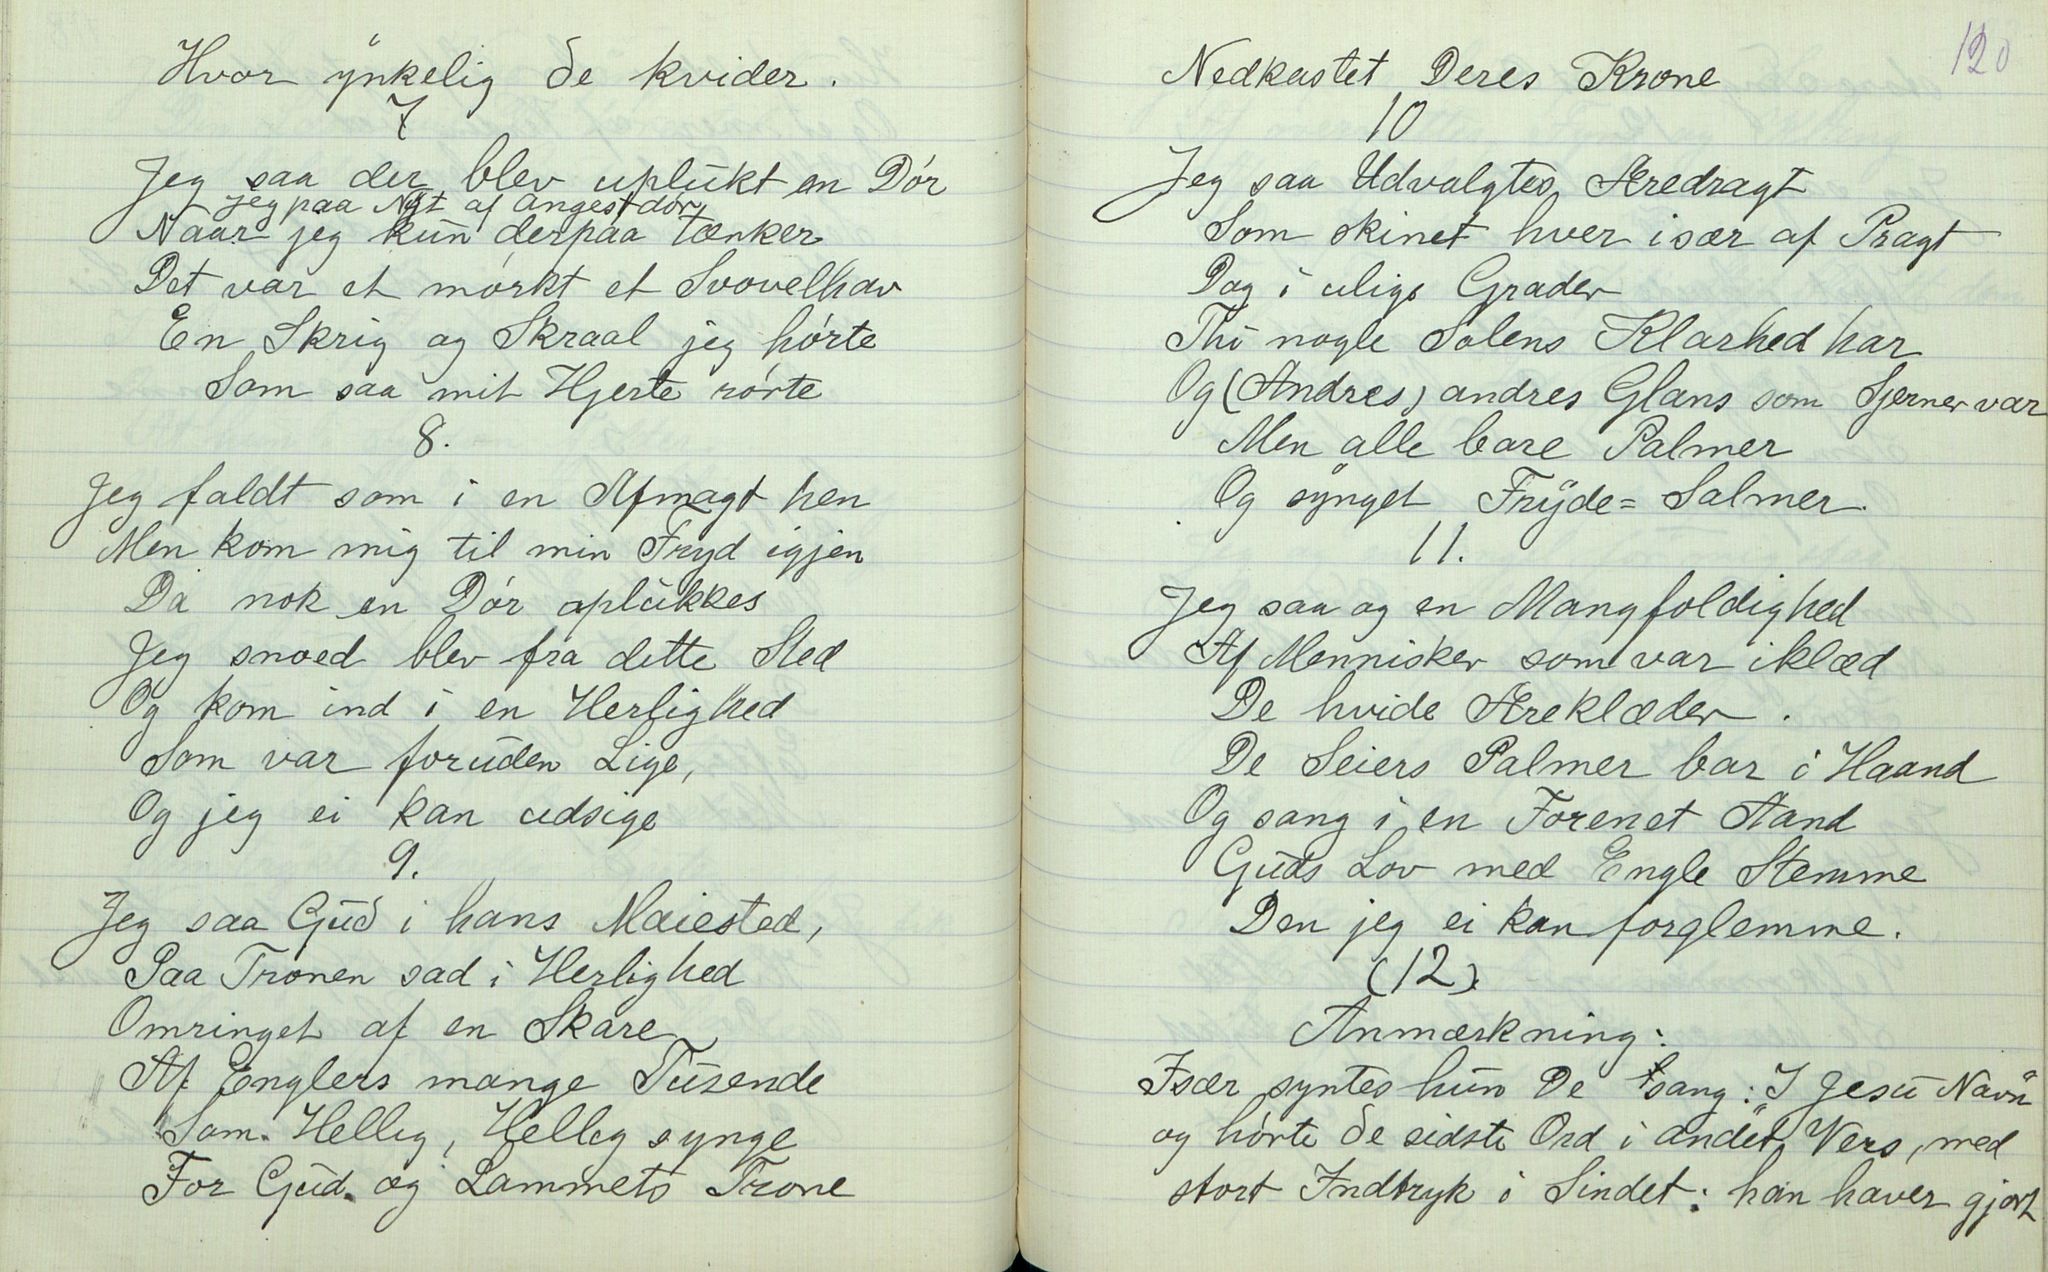 Hvor ÿnkelig de kvider.
7
Jeg saa der blev uplukt en Dór
jeg paa Nyt af angest dór
Naar jeg kun derpaa tænker
Det var et mórkt et Svovelhav
En Skrig og Skraal jeg hórte
Som saa mit Hjerte rórte
8.
Jeg faldt som i en Afmagt hen
Men kom mig til min Fryd igjen
Da nok en Dór oplukkes
Jeg snoed blev fra dette Sted
Og kom ind i en Herlighed
Som var foruden Lige,
Og jeg ei kan udsige
9.
Jeg saa Gud i hans Maiested,
Paa Tronen sad i Herlighed
Omringet af en Skare
Af Englers mange Tusende
Som Hellig, Hellig synge
For Gud og Lammets Trone
120
Nedkastet Deres Krone
10
Jeg saa Udvalgtes Æredragt
Som skinet hver især af Pragt
Dog i ulige Grader
Thi nogle Solens Klarhed har
Og (Andres) andres Glans som Sjerner var
Men alle bare Palmer
Og sÿnget Frÿde= Salmer.
11.
Jeg saa og en Mangfoldighed
Af Mennisker som var iklæd
De hvide Æreklæder.
De Seiers Palmer bar i Haand
Og sang i en Forenet Aand
Guds Lov med Engle Stemme
Den jeg ei kan forglemme.
(12).
Anmærkning:
Især syntes hun De sang: I Jesu Navn
og hórte de sidste Ord i andet Vers, med
stort Indtryk i Sindet: han haver gjort